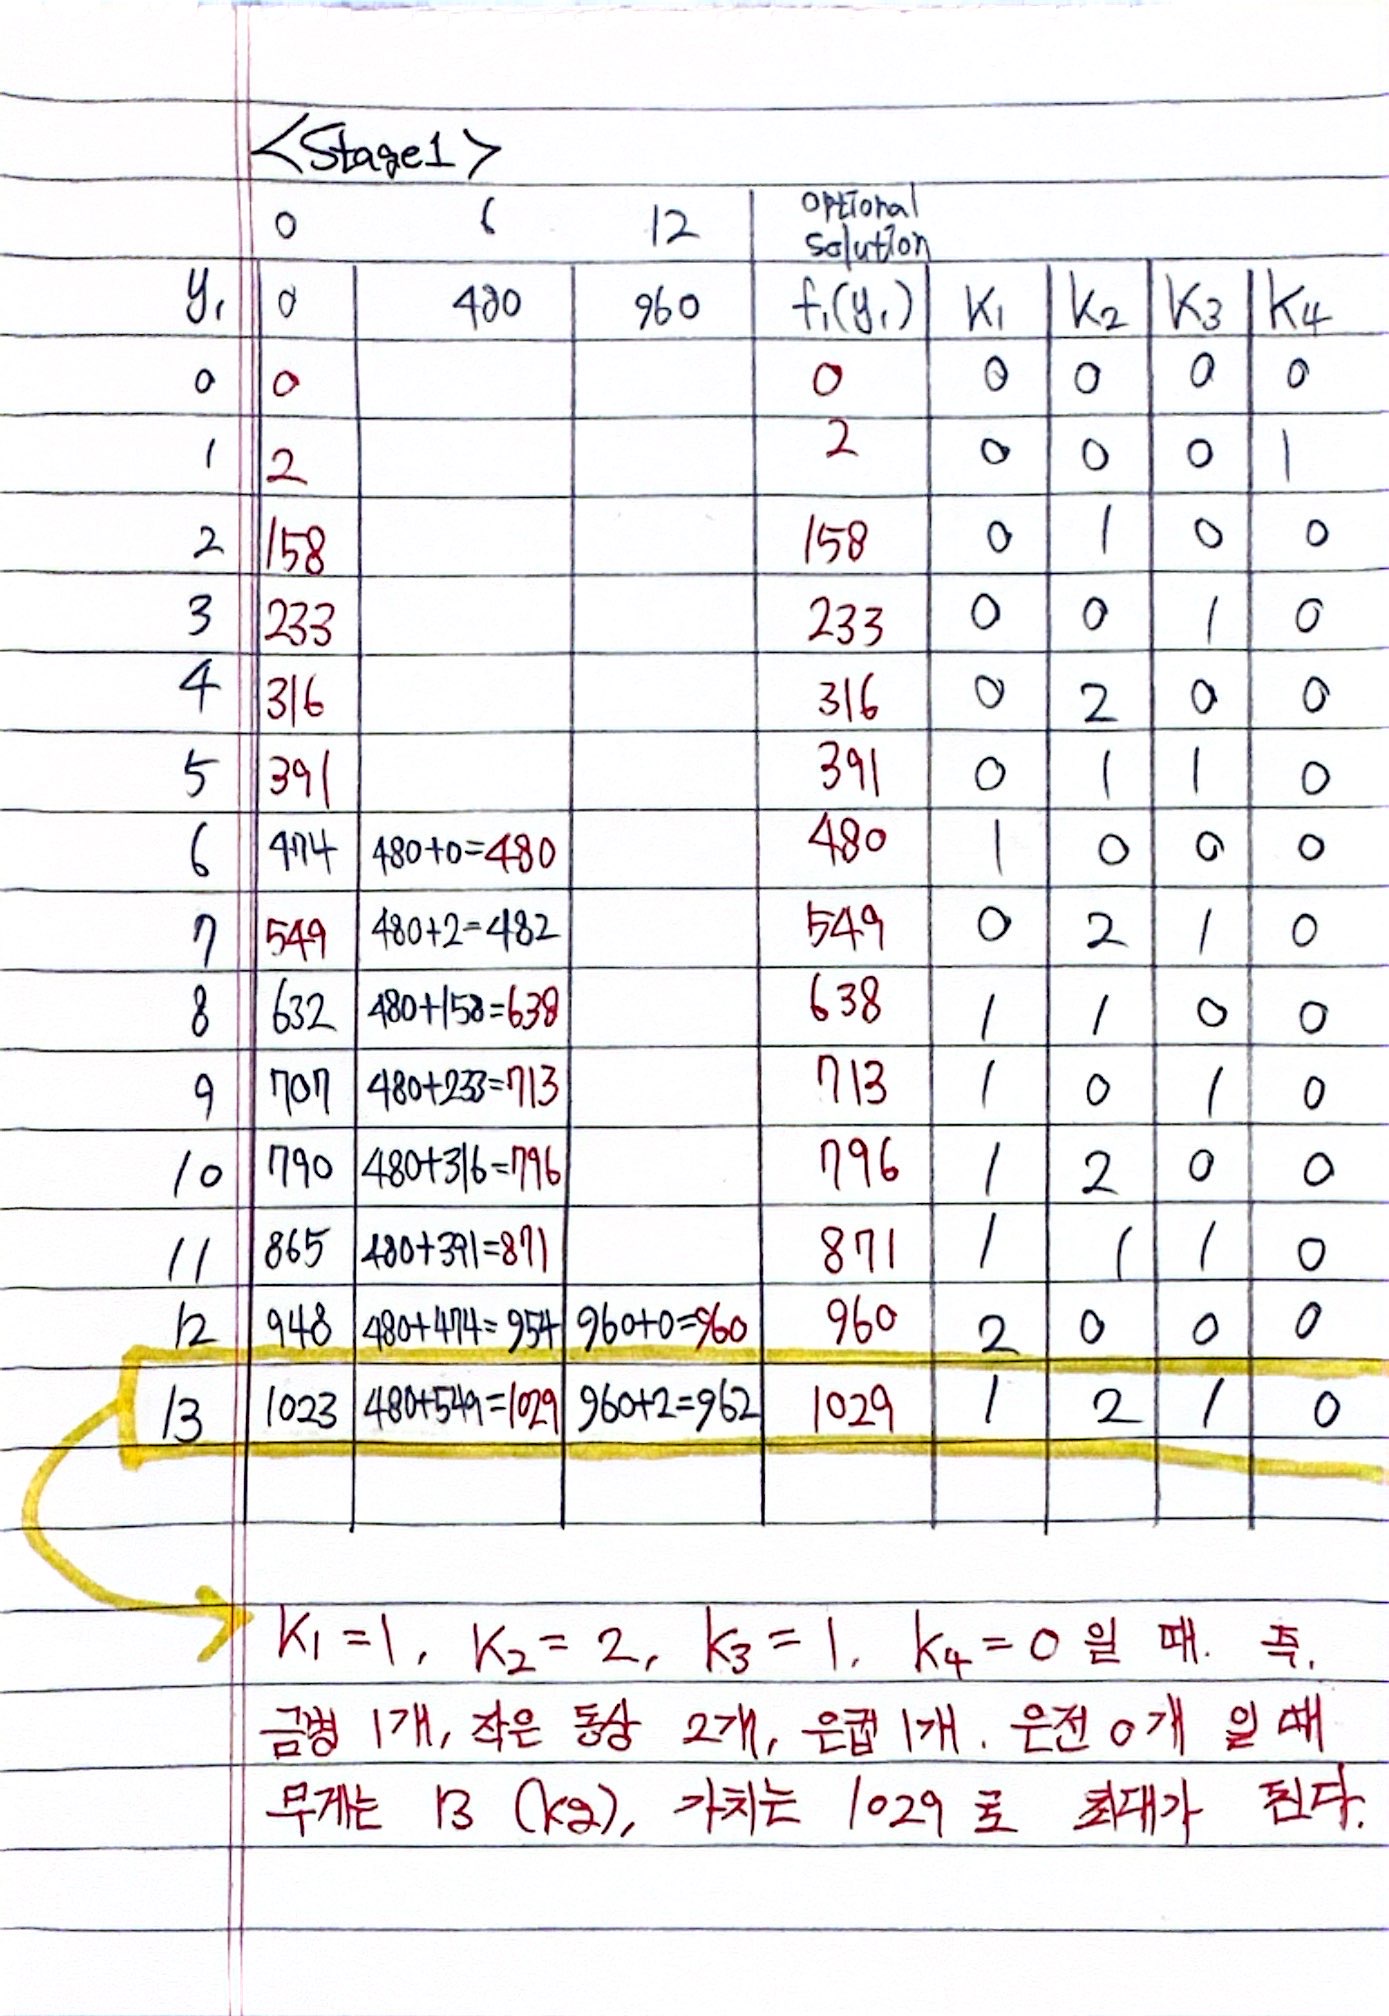 <Stage1>
0 6 12 optional
solution
y₁ 0 480 960 f₁(y₁) K₁ K₂ K₃ K₄
0 0 0 0 0 0 0
1 2 2 0 0 0 1
2 158 158 0 1 0 0
3 233 233 0 0 1 0
4 316 316 0 2 0 0
5 391 391 0 1 1 0
6 474 480+0=480 480 1 0 0 0
7 549 480+2=482 549 0 2 1 0
8 632 480+158=638 638 1 1 0 0
9 707 480+233=713 713 1 0 1 0
10 790 480+316=796 796 1 2 0 0
11 865 480+391=871 871 1 1 1 0
12 948 480+474=954 960+0=960 960 2 0 0 0
13 1023 480+549=1029 960+2=962 1029 1 2 1 0
K₁=1, K₂=2, K₃=1, K₄=0 일 때. 즉,
금병 1개, 작은 동상 2개, 은컵 1개. 은전 0개 일 때
무게는 13 (kg), 가치는 1029로 최대가 된다.